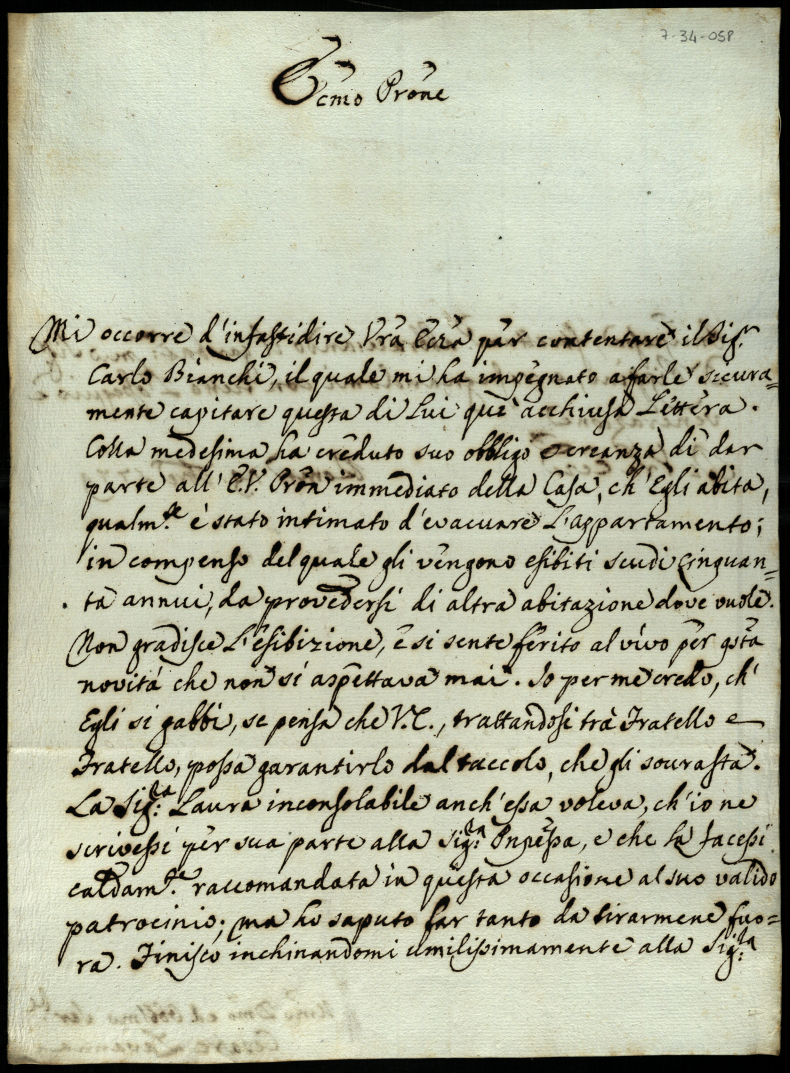 7-34-058
Ecmo Prone
Mi occorre d'infastidire Vra Ecza per contentare il Sigr.
Carlo Bianchi, il quale mi ha impegnato a farle sicura=
mente capitare questa di lui quì acchiusa Lettera.
Colla medesima ha creduto suo obbligo e creanza di dar
parte all' E.V. Pron immediato della Casa, ch' Egli abita,
qualm.te è stato intimato d'evacuare L'appartamento;
in compenso del quale gli vengono esibiti scudi cinquan=
ta annui, da provedersi di altra abitazione dove vuole.
Non gradisce L'esibizione, e si sente ferito al vivo per qsta
novità che non si aspettava mai. Io per me credo, ch'
Egli si gabbi, se pensa che V.E., trattandosi trà Fratello e
Fratello, possa garantirlo dal taccolo, che gli sourasta.
La Sig:ra Laura inconsolabile anch' essa voleva, ch'io ne
scrivessi per sua parte alla Sig:ra Pnpessa, e che la facessi
caldam.te raccomandata in questa occasione al suo valido
patrocinio; ma ho saputo far tanto da tirarmene fuo=
ra. Finisco inchinandomi umilissimamente alla Sig:ra